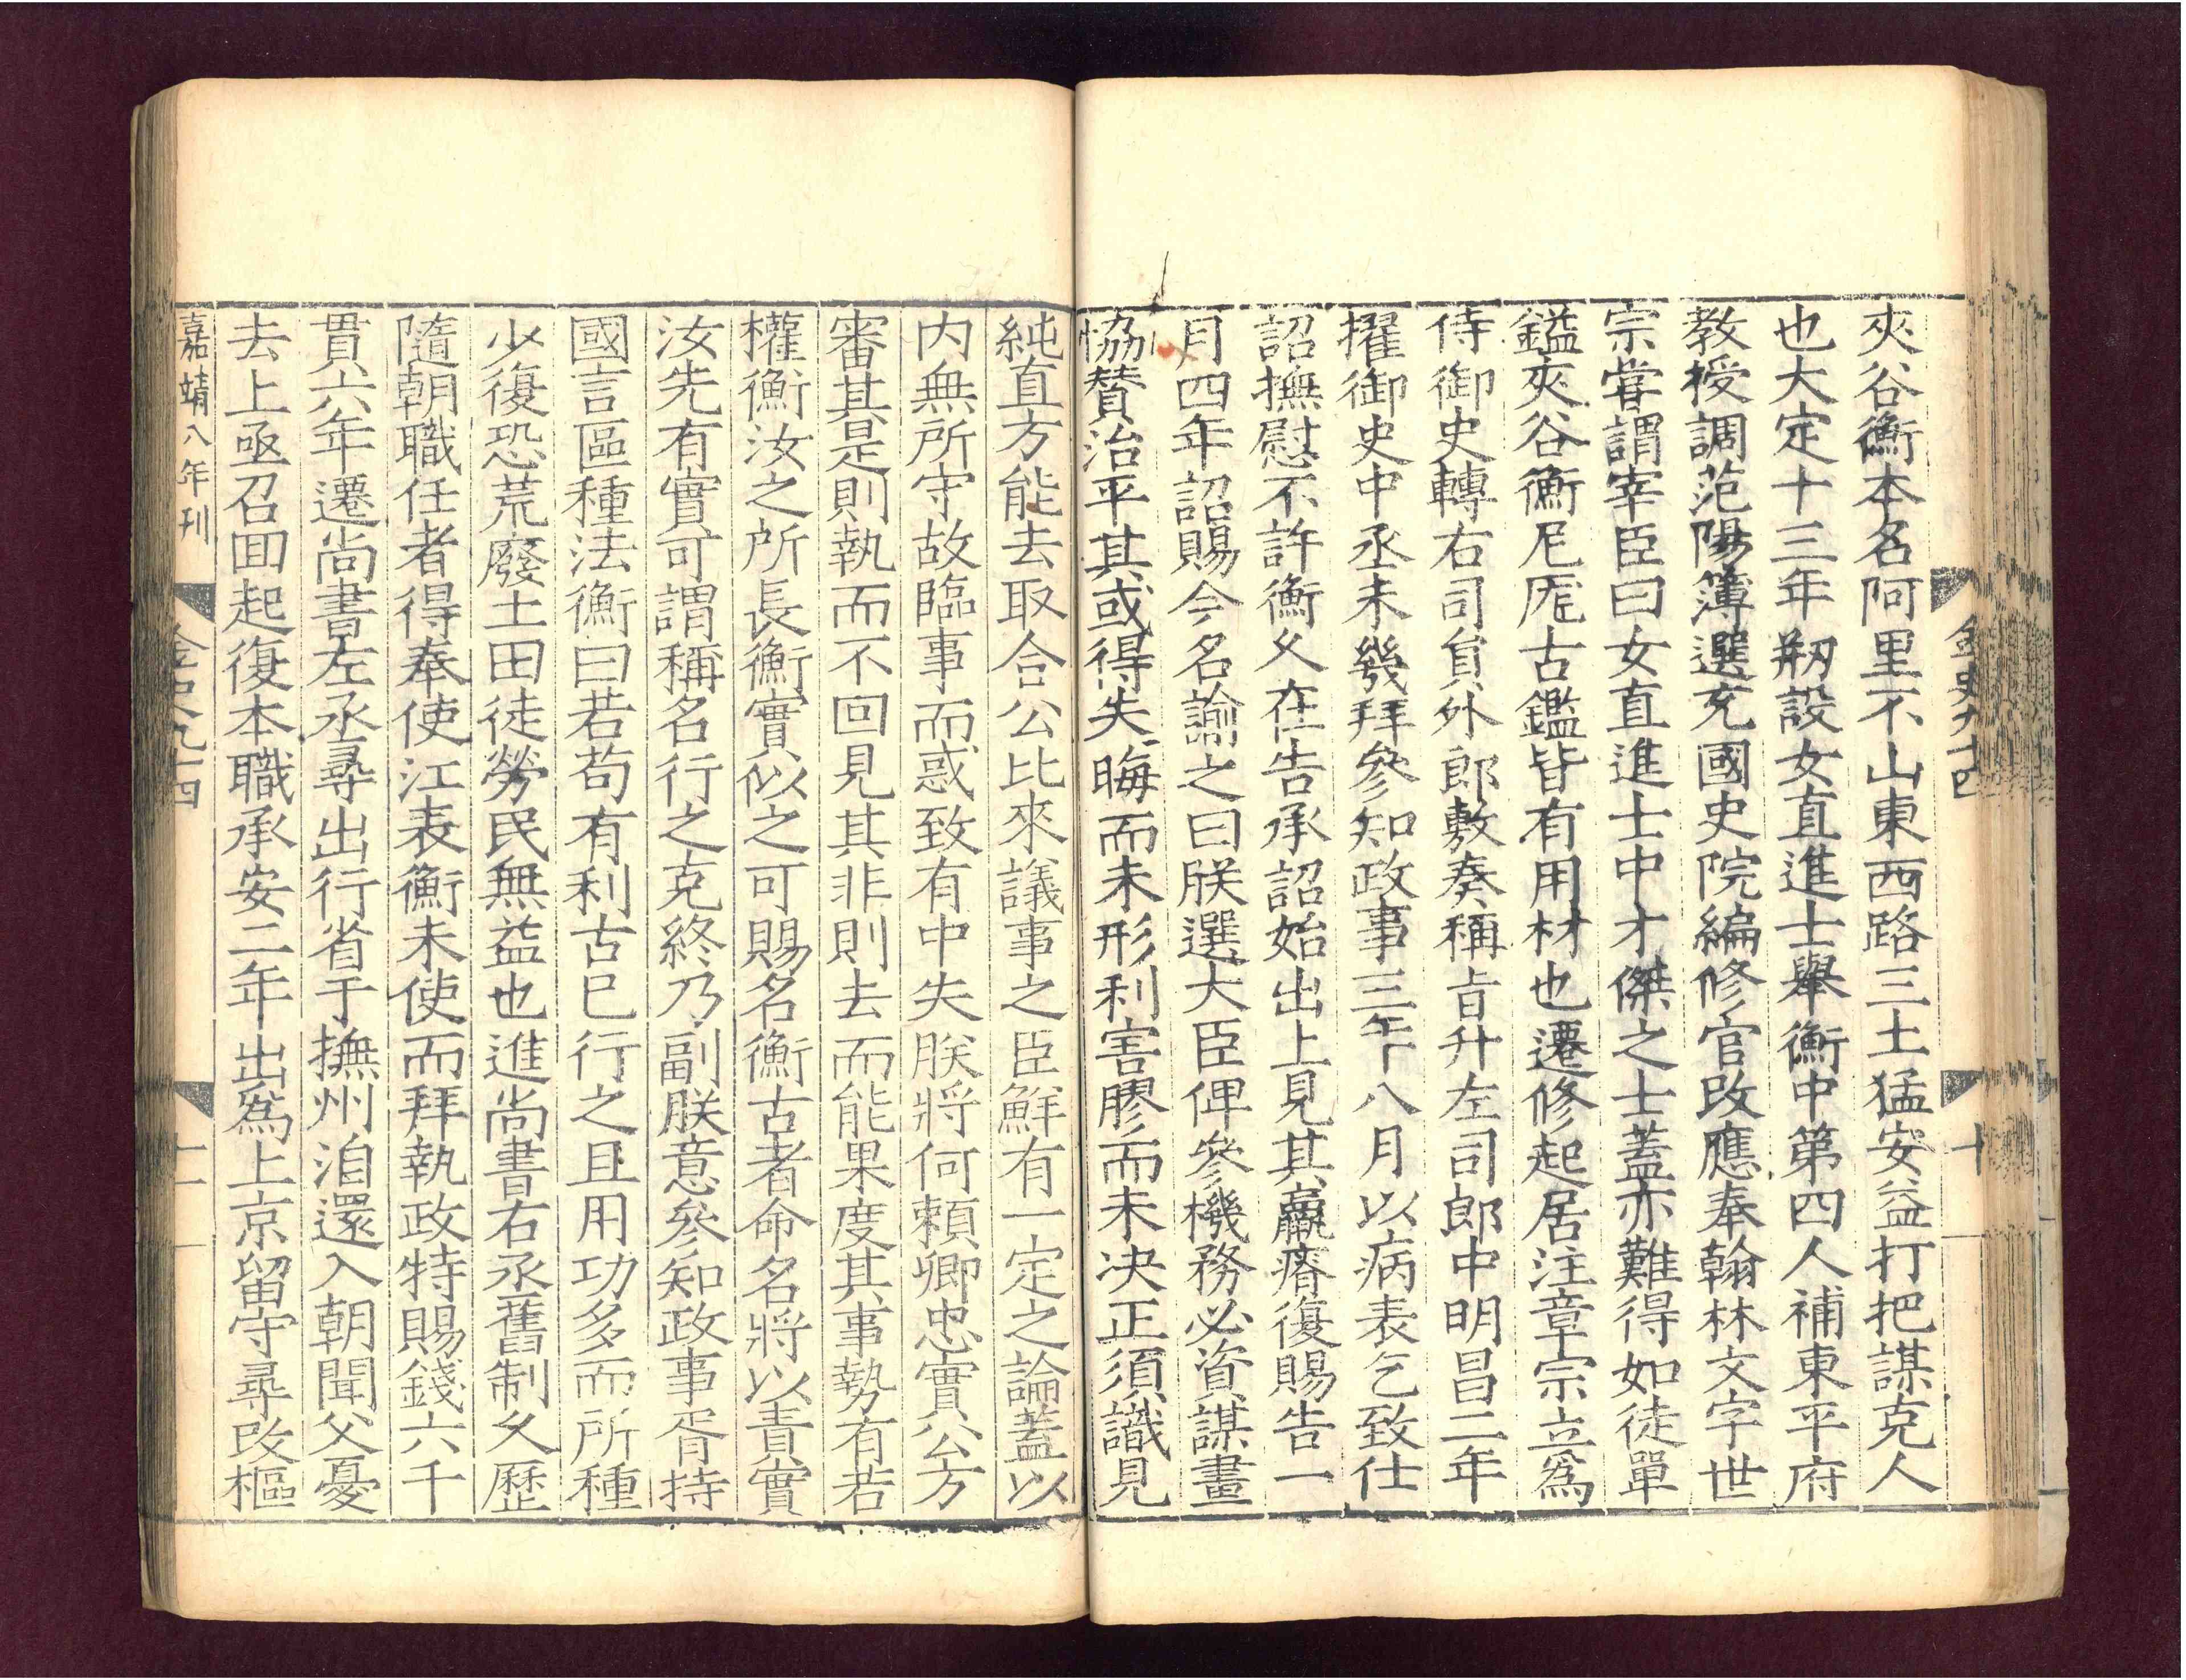 金史九十四
十
夾谷衡本名阿里不山東西路三土猛安益打把謀克人
也大定十三年剏設女直進士舉衡中第四人補東平府
教授調范陽簿選充國史院編修官改應奉翰林文字世
宗嘗謂宰臣曰女直進士中才傑之士蓋亦難得如徒單
鎰夾谷衡尼厖古鑑皆有用材也遷修起居注章宗立爲
侍御史轉右司貟外郎敷奏稱旨升左司郎中明昌二年
擢御史中丞未幾拜參知政事三年八月以病表乞致仕
詔撫慰不許衡久在告承詔始出上見其羸瘠復賜告一
月四年詔賜今名諭之曰朕選大臣俾參機務必資謀畫
協賛治平其或得失晦而未形利害膠而未决正須識見
純直方能去取合公比來議事之臣鮮有一定之論蓋以
内無所守故臨事而惑致有中失朕將何頼卿忠實公方
審其是則執而不回見其非則去而能果度其事勢有若
權衡汝之所長衡實似之可賜名衡古者命名將以責實
汝先有實可謂稱名行之克終乃副朕意參知政事胥持
國言區種法衡曰若苟有利古已行之且用功多而所種
少復恐荒廢土田徒勞民無益也進尚書右丞舊制久歷
隨朝職任者得奉使江表衡未使而拜執政特賜錢六千
貫六年遷尚書左丞尋出行省于撫州洎還入朝聞父憂
去上亟召囬起復本職承安二年出爲上京留守尋改樞
嘉靖八年刊
金史九十四
十一